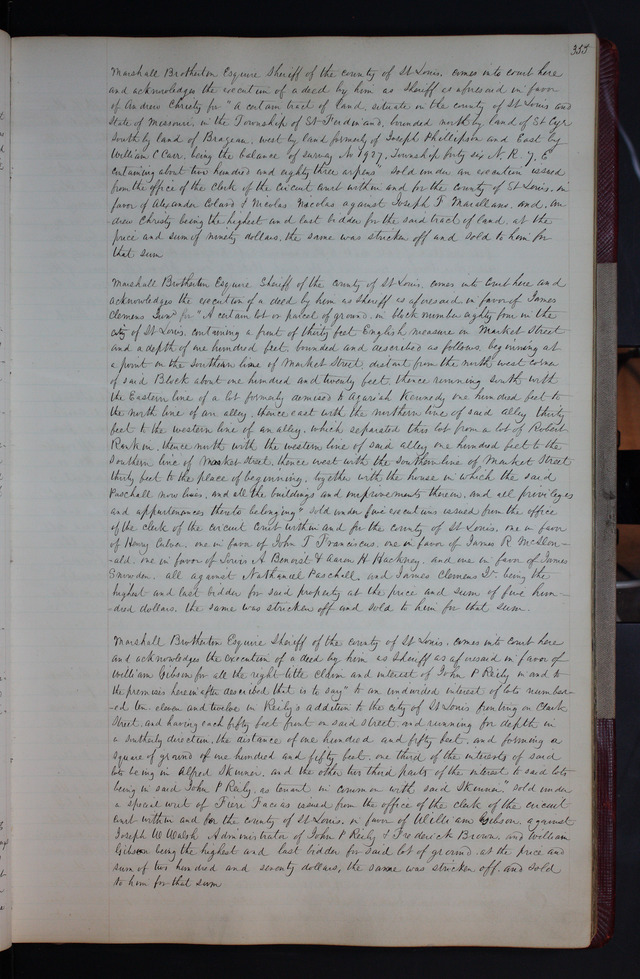 355
Marshall Brotherton Esquire Sheriff of the county of St Louis, comes into court here
and acknowledges the execution of a deed by him as Sheriff as aforesaid in favor
of Andrew Christy for "A certain tract of land, situate in the county of St Louis and
State of Missouri, in the Township of St Ferdinand, bounded north by land of St Cyr
South by land of Brazeau, west by land formerly of Joseph Phillipson and East by
William C Carr, being the balance of survey No 1927, Township forty six N. R. 7, E
containing about two hundred and eighty three arpens" sold under an execution issued
from the office of the Clerk of the Circuit court within and for the county of St Louis, in
favor of Alexander & Nicolas against Joseph T and, An
drew Christy being the highest and last bidder for the said tract of land, at the
price and sum of ninety dollars, the same was stricken off and sold to him for
that sum
Marshall Brotherton Esquire Sheriff of the county of St Louis, comes into Court here and
acknowledges the execution of a deed by him as Sheriff as aforesaid, in favor of James
Clemens for "A certain lot or parcel of ground, in block number eighty four in the
city of St Louis, containing a front of thirty feet English measure on Market Street
and a depth of one hundred feet, bounded and described as follows, beginning at
a point on the Southern line of Market Street, distant from the north west corner
of said Block about one hundred and twenty feet, thence running South with
the Eastern line of a lot formerly demised to Kennedy one hundred feet to
the north line of an alley, thence east with the northern line of said alley thirty
feet to the western line of an alley, which separates this lot from a lot of Robert
Rankin, thence north with the western line of said alley one hundred feet to the
Southern line of Market Street, thence west with the Southern line of Market Street
thirty feet to the place of beginning, together with the house in which the said
Paschall now lives, and all the buildings and improvements therein, and all privileges
and appurtenances thereto belonging" sold under five executions issued from the office
of the clerk of the circuit Court within and for the county of St Louis, one in favor
of Henry, one in favor of John T Franciscus, one in favor of James R McDon-
-ald, one in favor of Louis A Benoist & Aaron H Hackney, and one in favor of James
Snowden, all against Nathaniel Paschall, and James Clemens Jr being the
highest and last bidder for said property at the price and sum of five hun-
-dred dollars, the same was stricken off and sold to him for that sum.
Marshall Brotherton Esquire Sheriff of the county of St Louis, comes into Court here
and acknowledges the execution of a deed by him as Sheriff as aforesaid in favor of
William Gibson for all the right title claim and interest of John P Reily in and to
the premises herein after described that is to say "to an undivided interest of lots number-
-ed ten, eleven and twelve in Reily's addition to the city of St Louis fronting on Clark
Street, and having each fifty feet front on said street, and running for depth in
a southerly direction, the distance of one hundred and fifty feet, and forming a
square of ground of one hundred and fifty feet, one third of the interests of said
lots being in Alfred Skinner, and the other two third parts of the interest to said lots
being in said John P Reily, as tenant in common with said Skinner," sold under
a special writ of Fieri Facias issued from the office of the clerk of the circuit
court within and for the county of St Louis, in favor of William Gibson, against
Joseph W Walsh Administrator of John P Reily & Frederick Brown, and William
Gibson being the highest and last bidder for said lot of ground, at the price and
sum of two hundred and seventy dollars, the same was stricken off, and sold
to him for that sum